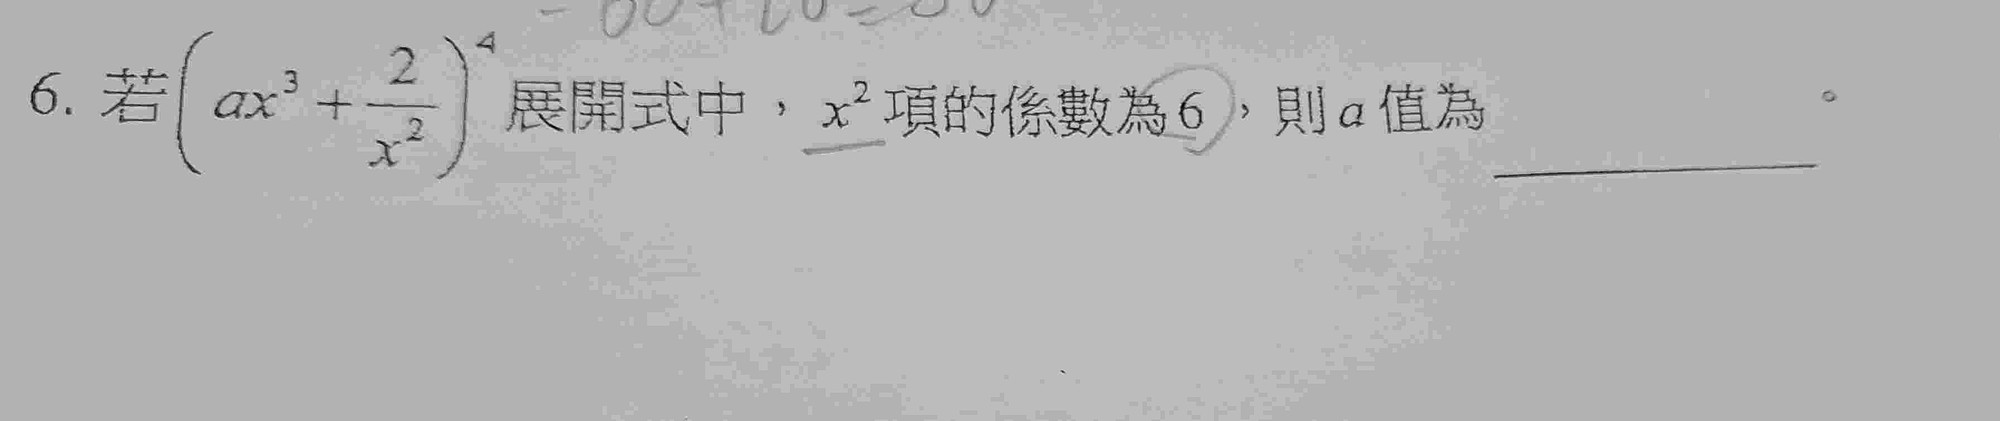 6. 若(ax³ + 2/x²)⁴ 展開式中，x² 項的係數為 6，則 a 值為________。